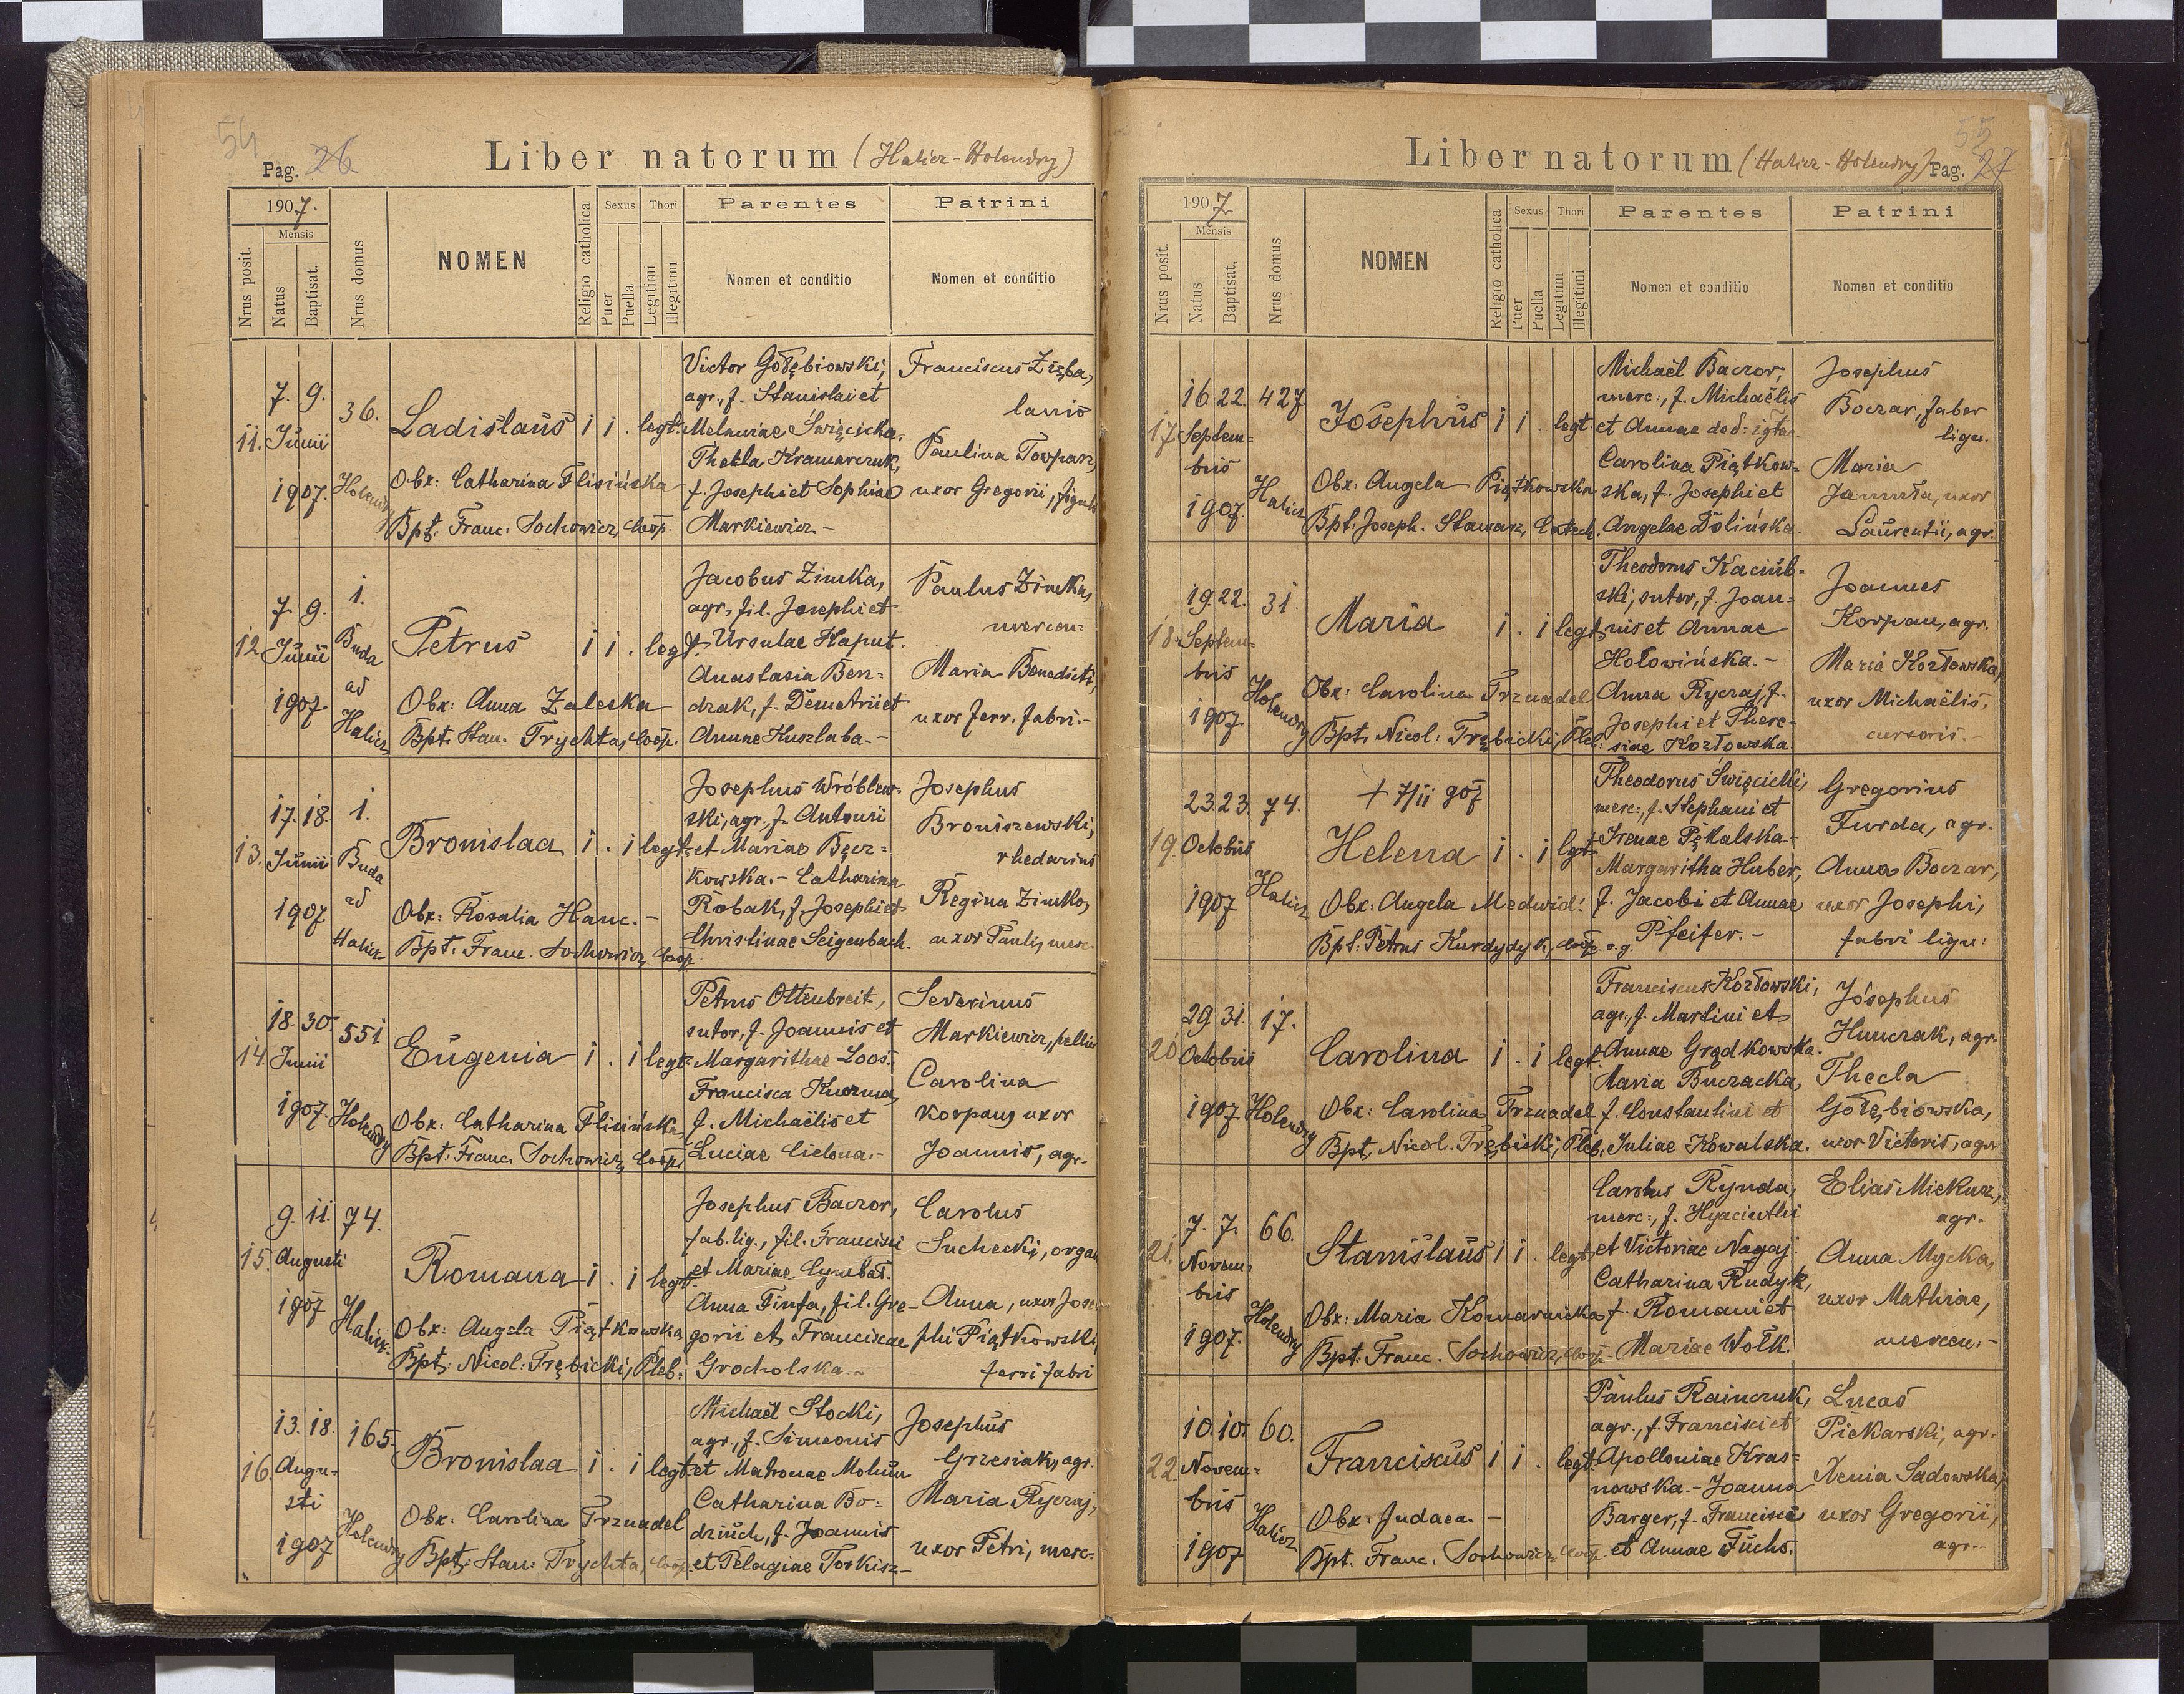 54
Pag. 26
Liber natorum (Halicz-Holendry)
1907.
Nrus posit.
Mensis
Natus
Baptisat.
Nrus domus
NOMEN
Religio catholica
Sexus
Puer
Puella
Thori
Legitimi
Illegitimi
Parentes
Nomen et conditio
Patrini
Nomen et conditio
11.
7. 9.
Junii
1907.
36.
Holendry
Ladislaus 1 1 . legt.
Obx: Catharina Flisińska
Bpt. Franc. Sochowicz, Coop.
Victor Gołębiowski,
agr., f. Stanislai et
Melaniae Święcicka.
Thekla Kramarczuk,
f. Josephi et Sophiae
Markiewicz.-
Franciscus Zięba,
lanio
Paulina Towpasz,
uxor Gregorii, figuli
12.
7. 9.
Junii
1907.
1.
Buda
ad
Halicz
Petrus 1 1 . legt.
Obx: Anna Zaleska
Bpt. Stan. Trychta, Coop.
Jacobus Zimka,
agr., fil. Josephi et
Ursulae Kaput.
Anastasia Ben=
drak, f. Demetrii et
Annae Huszlaba.-
Paulus Zimka,
mercen=
Maria Benedicti,
uxor ferr. fabri.-
13.
17. 18.
Junii
1907
1.
Buda
ad
Halicz
Bronislaa 1 . 1 legt.
Obx: Rosalia Hanc.-
Bpt. Franc. Sochowicz, Coop.
Josephus Wróblew=
ski, agr., f. Antonii
et Mariae Bęcz=
kowska.- Catharina
Robak, f. Josephi et
Christinae Seigenbach.
Josephus
Broniszewski,
rhedarius
Regina Zimka,
uxor Pauli, merc.
14.
18. 30.
Junii
1907.
551
Holendry
Eugenia 1 . 1 legt.
Obx: Catharina Flisińska
Bpt. Franc. Sochowicz, Coop.
Petrus Ottenbreit,
sutor, f. Joannis et
Margarithae Loos.
Francisca Kuzma,
f. Michaëlis et
Luciae Cielona.-
Severinus
Markiewicz, pellio
Carolina
Korpan, uxor
Joannis, agr.
15.
9. 11.
Augusti
1907
74.
Halicz
Romana 1 . 1 legt.
Obx: Angela Piątkowska
Bpt: Nicol: Trębicki, Pleb:
Josephus Baczor,
fab. lig., fil. Francisci
et Mariae Cymbał.
Anna Finfa, fil. Gre-
gorii et Franciscae
Grocholska.-
Carolus
Suchecki, organ
Anna, uxor Jose
phi Piątkowski,
ferri fabri
16.
13. 18.
Augu-
sti
1907
165.
Holendry
Bronislaa 1 . 1 legt.
Obx: Carolina Trznadel
Bpt: Stan: Trychta, Coop.
Michaël Stocki,
agr., f. Simeonis
et Matronae Mohun
Catharina Bo=
dziuch, f. Joannis
et Pelagiae Torkisz-
Josephus
Grzesiak, agr.
Maria Ryczaj,
uxor Petri, merc:
55
Liber natorum (Halicz-Holendry) Pag. 27
1907
Nrus posit.
Mensis
Natus
Baptisat.
Nrus domus
NOMEN
Religio catholica
Sexus
Puer
Puella
Thori
Legitimi
Illegitimi
Parentes
Nomen et conditio
Patrini
Nomen et conditio
17.
16. 22.
Septem=
bris
1907.
427
Halicz
Josephus 1 1 . legt.
Obx: Angela Piątkowska
Bpt. Joseph. Stawarz, Catech.
Michaël Baczor,
merc:, f. Michaëlis
et Annae
Carolina Piątkow=
ska, f. Josephi et
Angelae Dolińska.
Josephus
Boczar, faber
lign.
Maria
uxor
Laurentii, agr.
18.
19. 22.
Septem=
bris
1907
31.
Holendry
Maria 1 . 1 legt.
Obx: Carolina Trznadel
Bpt. Nicol: Trębicki, Pleb:
Theodorus Kaciub=
ski, sutor, f. Joan=
nis et Annae
Hołowińska.-
Anna Ryczaj, f.
Josephi et There-
siae Kozłowska.
Joannes
Korpan, agr.
Maria Kozłowska,
uxor Michaëlis,
cursoris.-
19.
23. 23.
Octobris
1907
74.
Halicz
+ 7/11 907
Helena 1 . 1 lgt.
Obx: Angela Medwid:
Bpt. Petrus Kurdydyk, Coop. r.g.
Theodorus Święcicki,
merc:, f. Stephani et
Irenae Pękalska.-
Margaritha Huber,
f. Jacobi et Annae
Pfeifer.-
Gregorius
Furda, agr.
Anna Boczar,
uxor Josephi,
fabri lign:
20.
29. 31.
Octobris
1907
17.
Holendry
Carolina 1 . 1 legt.
Obx: Carolina Trznadel
Bpt. Nicol. Trębicki, Pleb.
Franciscus Kozłowski,
agr., f. Martini et
Annae Grądkowska.
Maria Buczacka,
f. Constantini et
Juliae Kowalska.
Josephus
Hunczak, agr.
Thecla
Gołębiowska,
uxor Victoris, agr.
21.
7. 7.
Novem=
bris
1907.
66.
Holendry
Stanislaus 1 1 . legt.
Obx: Maria Komarnicka
Bpt. Franc. Sochowicz, Coop.
Carolus Rynda,
merc:, f. Hyacinthi
et Victoriae Nagaj.
Catharina Rudyk,
f. Romani et
Mariae Wołk.
Elias Mickusz,
agr.
Anna Mycka,
uxor Mathiae,
mercen:-
22.
10. 10.
Novem=
bris
1907
60.
Halicz
Franciscus 1 1 . legt.
Obx: Judaea.-
Bpt. Franc. Sochowicz, Coop.
Paulus Rainczuk,
agr., f. Francisci et
Apolloniae Kras=
nowska.- Joanna
Barger, f. Francisci
et Annae Fuchs.
Lucas
Piekarski, agr.
Xenia Sadowska,
uxor Gregorii,
agr.-